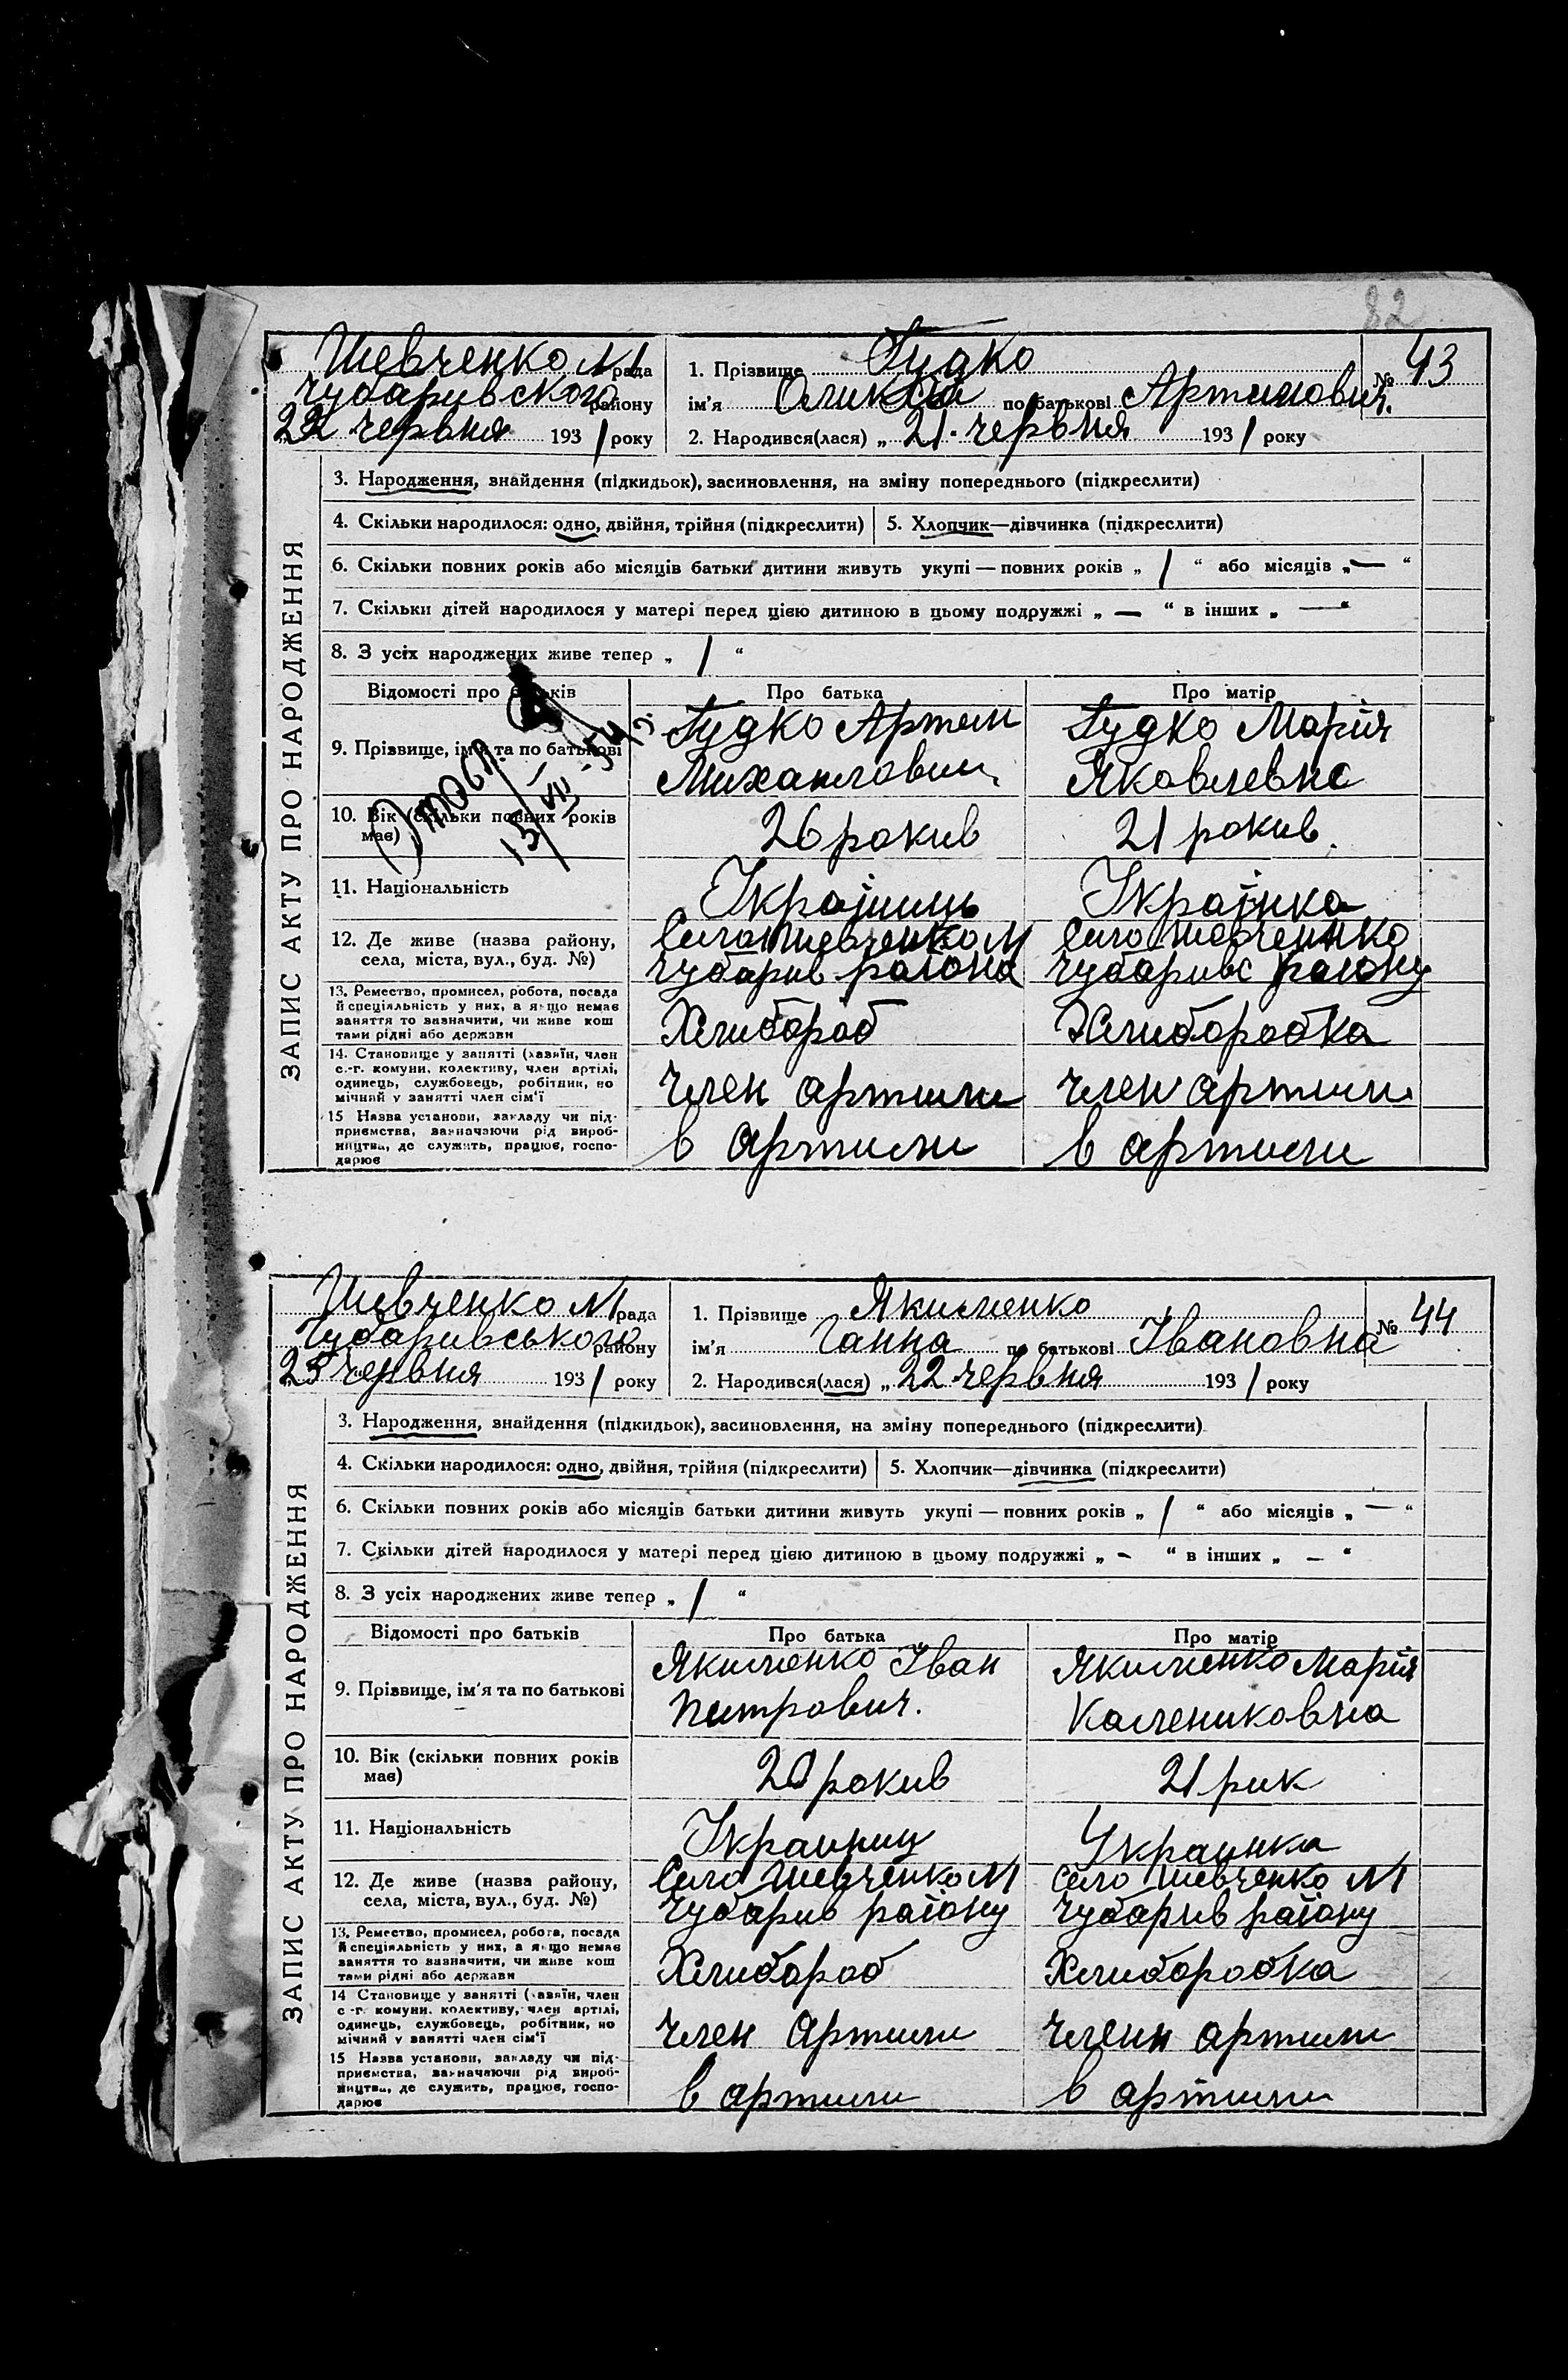 82
Шевченко №1 рада
Чубаривского району
22 червня 1931 року
1. Прізвище Гудко
№ 43
ім'я Оликса по батькові Артимович.
2. Народився(лася) „ 21 червня 1931 року
ЗАПИС АКТУ ПРО НАРОДЖЕННЯ
3. Народження, знайдення (підкидьок), засиновлення, на зміну попереднього (підкреслити)
4. Скільки народилося: одно, двійня, трійня (підкреслити) 5. Хлопчик—дівчинка (підкреслити)
6. Скільки повних років або місяців батьки дитини живуть укупі — повних років „ 1 “ або місяців „ — “
7. Скільки дітей народилося у матері перед цією дитиною в цьому подружжі „ — “ в інших „ — “
8. З усіх народжених живе тепер „ 1 “
Відомості про батьків Про батька Про матір
9. Прізвище, ім'я та по батькові
Гудко Артем
Михайлович
Гудко Марія
Яковлевна
10. Вік (скільки повних років
має)
26 рокив
21 рокив.
15/VII-54
11. Національність
Украінць
Украінка
12. Де живе (назва району,
села, міста, вул., буд. №)
Село Шевченко №
Чубарив раiона
Село Шевченко
Чубаривс раiону
13. Ремество, промисел, робота, посада
й спеціяльність у них, а якщо немає
заняття то зазначити, чи живе кош
тами рідні або держави
Хлибороб
Хлиборобка
14. Становище у занятті (хазяїн, член
с.-г. комуни, колективу, член артілі,
одинець, службовець, робітник, по
мічний у занятті член сім'ї
Член артили
Член артили
15 Назва установи, закладу чи під-
приємства, зазначаючи рід вироб-
ництва, де служить, працює, госпо-
дарює
в артили
в артили
Шевченко №1 рада
Чубаривського району
25 червня 1931 року
1. Прізвище Якименко
№ 44
ім'я Ганна по батькові Івановна
2. Народився(лася) „ 22 червня 1931 року
ЗАПИС АКТУ ПРО НАРОДЖЕННЯ
3. Народження, знайдення (підкидьок), засиновлення, на зміну попереднього (підкреслити)
4. Скільки народилося: одно, двійня, трійня (підкреслити) 5. Хлопчик—дівчинка (підкреслити)
6. Скільки повних років або місяців батьки дитини живуть укупі — повних років „ 1 “ або місяців „ — “
7. Скільки дітей народилося у матері перед цією дитиною в цьому подружжі „ — “ в інших „ — “
8. З усіх народжених живе тепер „ 1 “
Відомості про батьків Про батька Про матір
9. Прізвище, ім'я та по батькові
Якименко Іван
Петрович.
Якименко Марія
Калениковна
10. Вік (скільки повних років
має)
20 рокив
21 рик
11. Національність
Украиниц
Украинка
12. Де живе (назва району,
села, міста, вул., буд. №)
Село Шевченко №1
Чубарив раiону
Село Шевченко №1
Чубарив раiону
13. Ремество, промисел, робота, посада
й спеціяльність у них, а якщо немає
заняття то зазначити, чи живе кош
тами рідні або держави
Хлибороб
Хлиборобка
14 Становище у занятті (хазяїн, член
с.-г. комуни, колективу, член артілі,
одинець, службовець, робітник, по
мічний у занятті член сім'ї
Член артили
Членн артили
15 Назва установи, закладу чи під-
приємства, зазначаючи рід вироб-
ництва, де служить, працює, госпо-
дарює
в артили
в артили